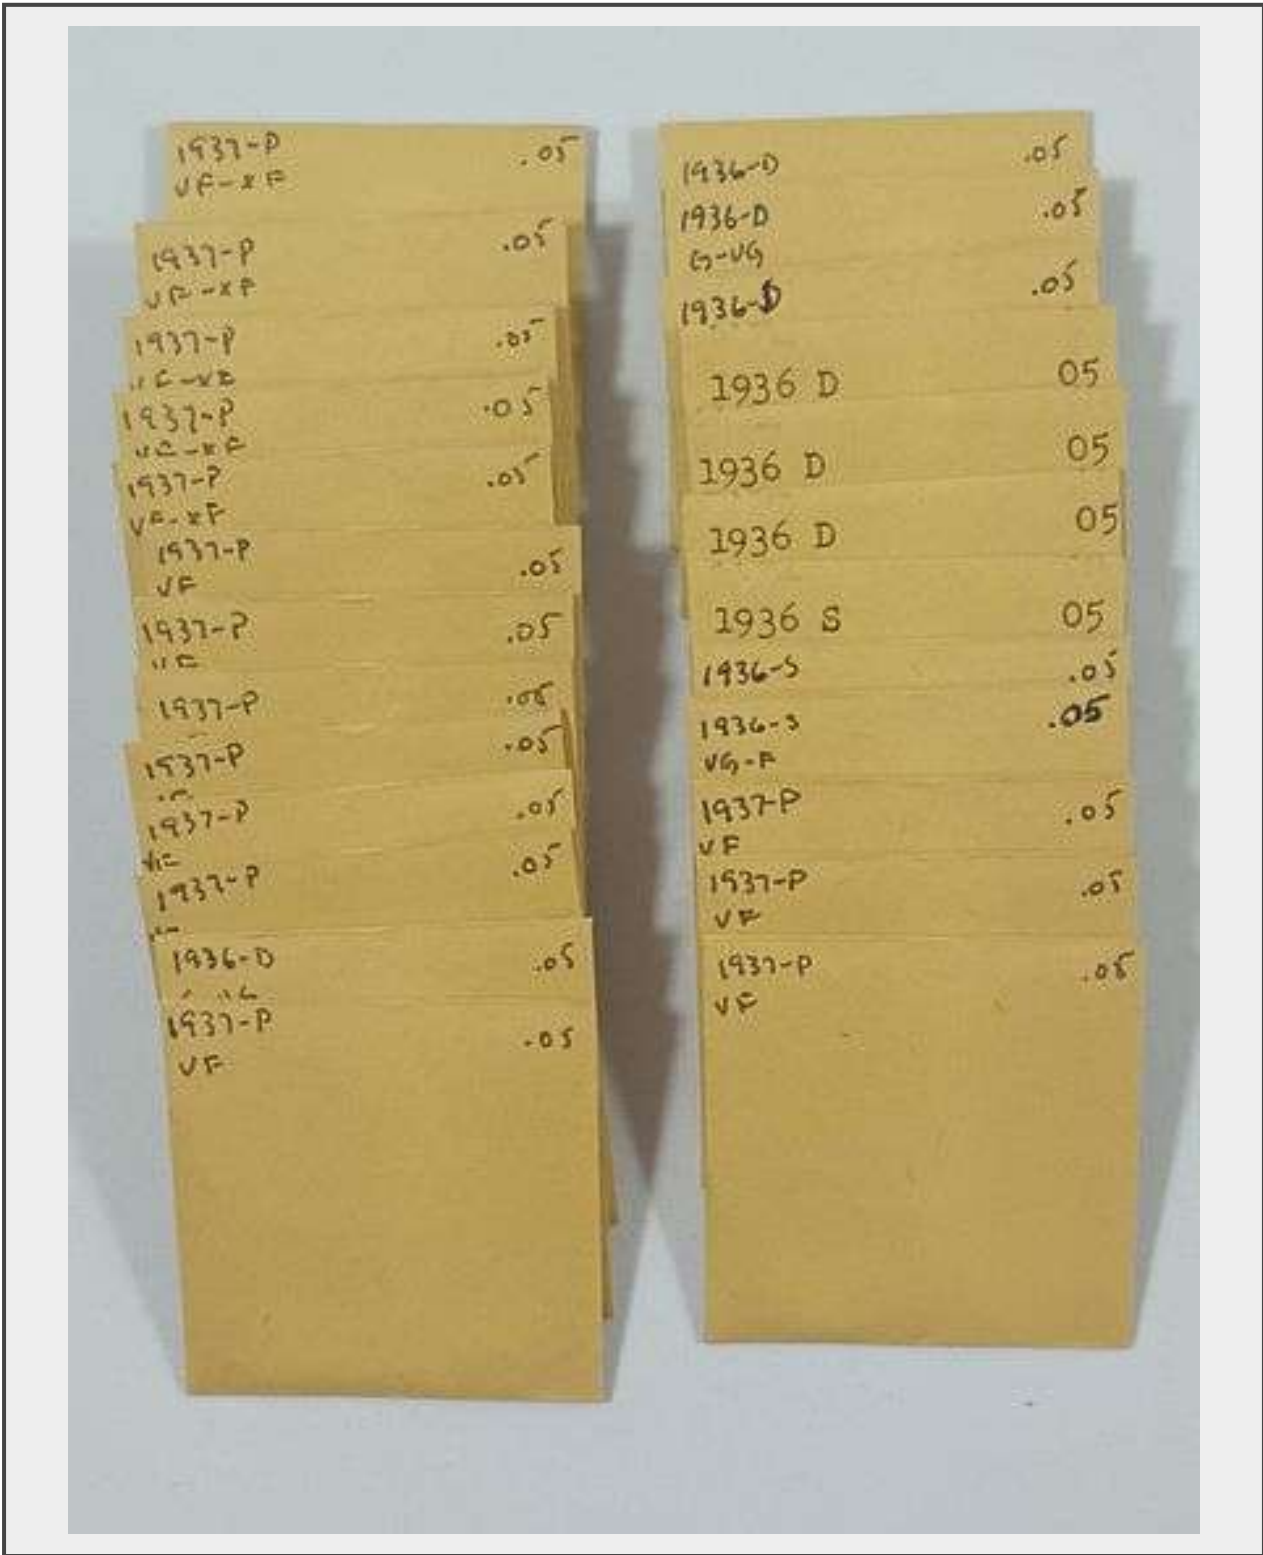 1937-P .05
VF-XF
1937-P .05
VF-XF
1937-P .05
VF-XF
1937-P .05
VF-XF
1937-P .05
VF-XF
1937-P .05
VF
1937-P .05
VF
1937-P .05
1937-P .05
1937-P .05
VF
1937-P .05
1936-D .05
1937-P .05
VF
1936-D .05
1936-D .05
G-VG
1936-D .05
1936 D 05
1936 D 05
1936 D 05
1936 S 05
1936-S .05
1936-S .05
VG-F
1937-P .05
VF
1937-P .05
VF
1937-P .05
VF